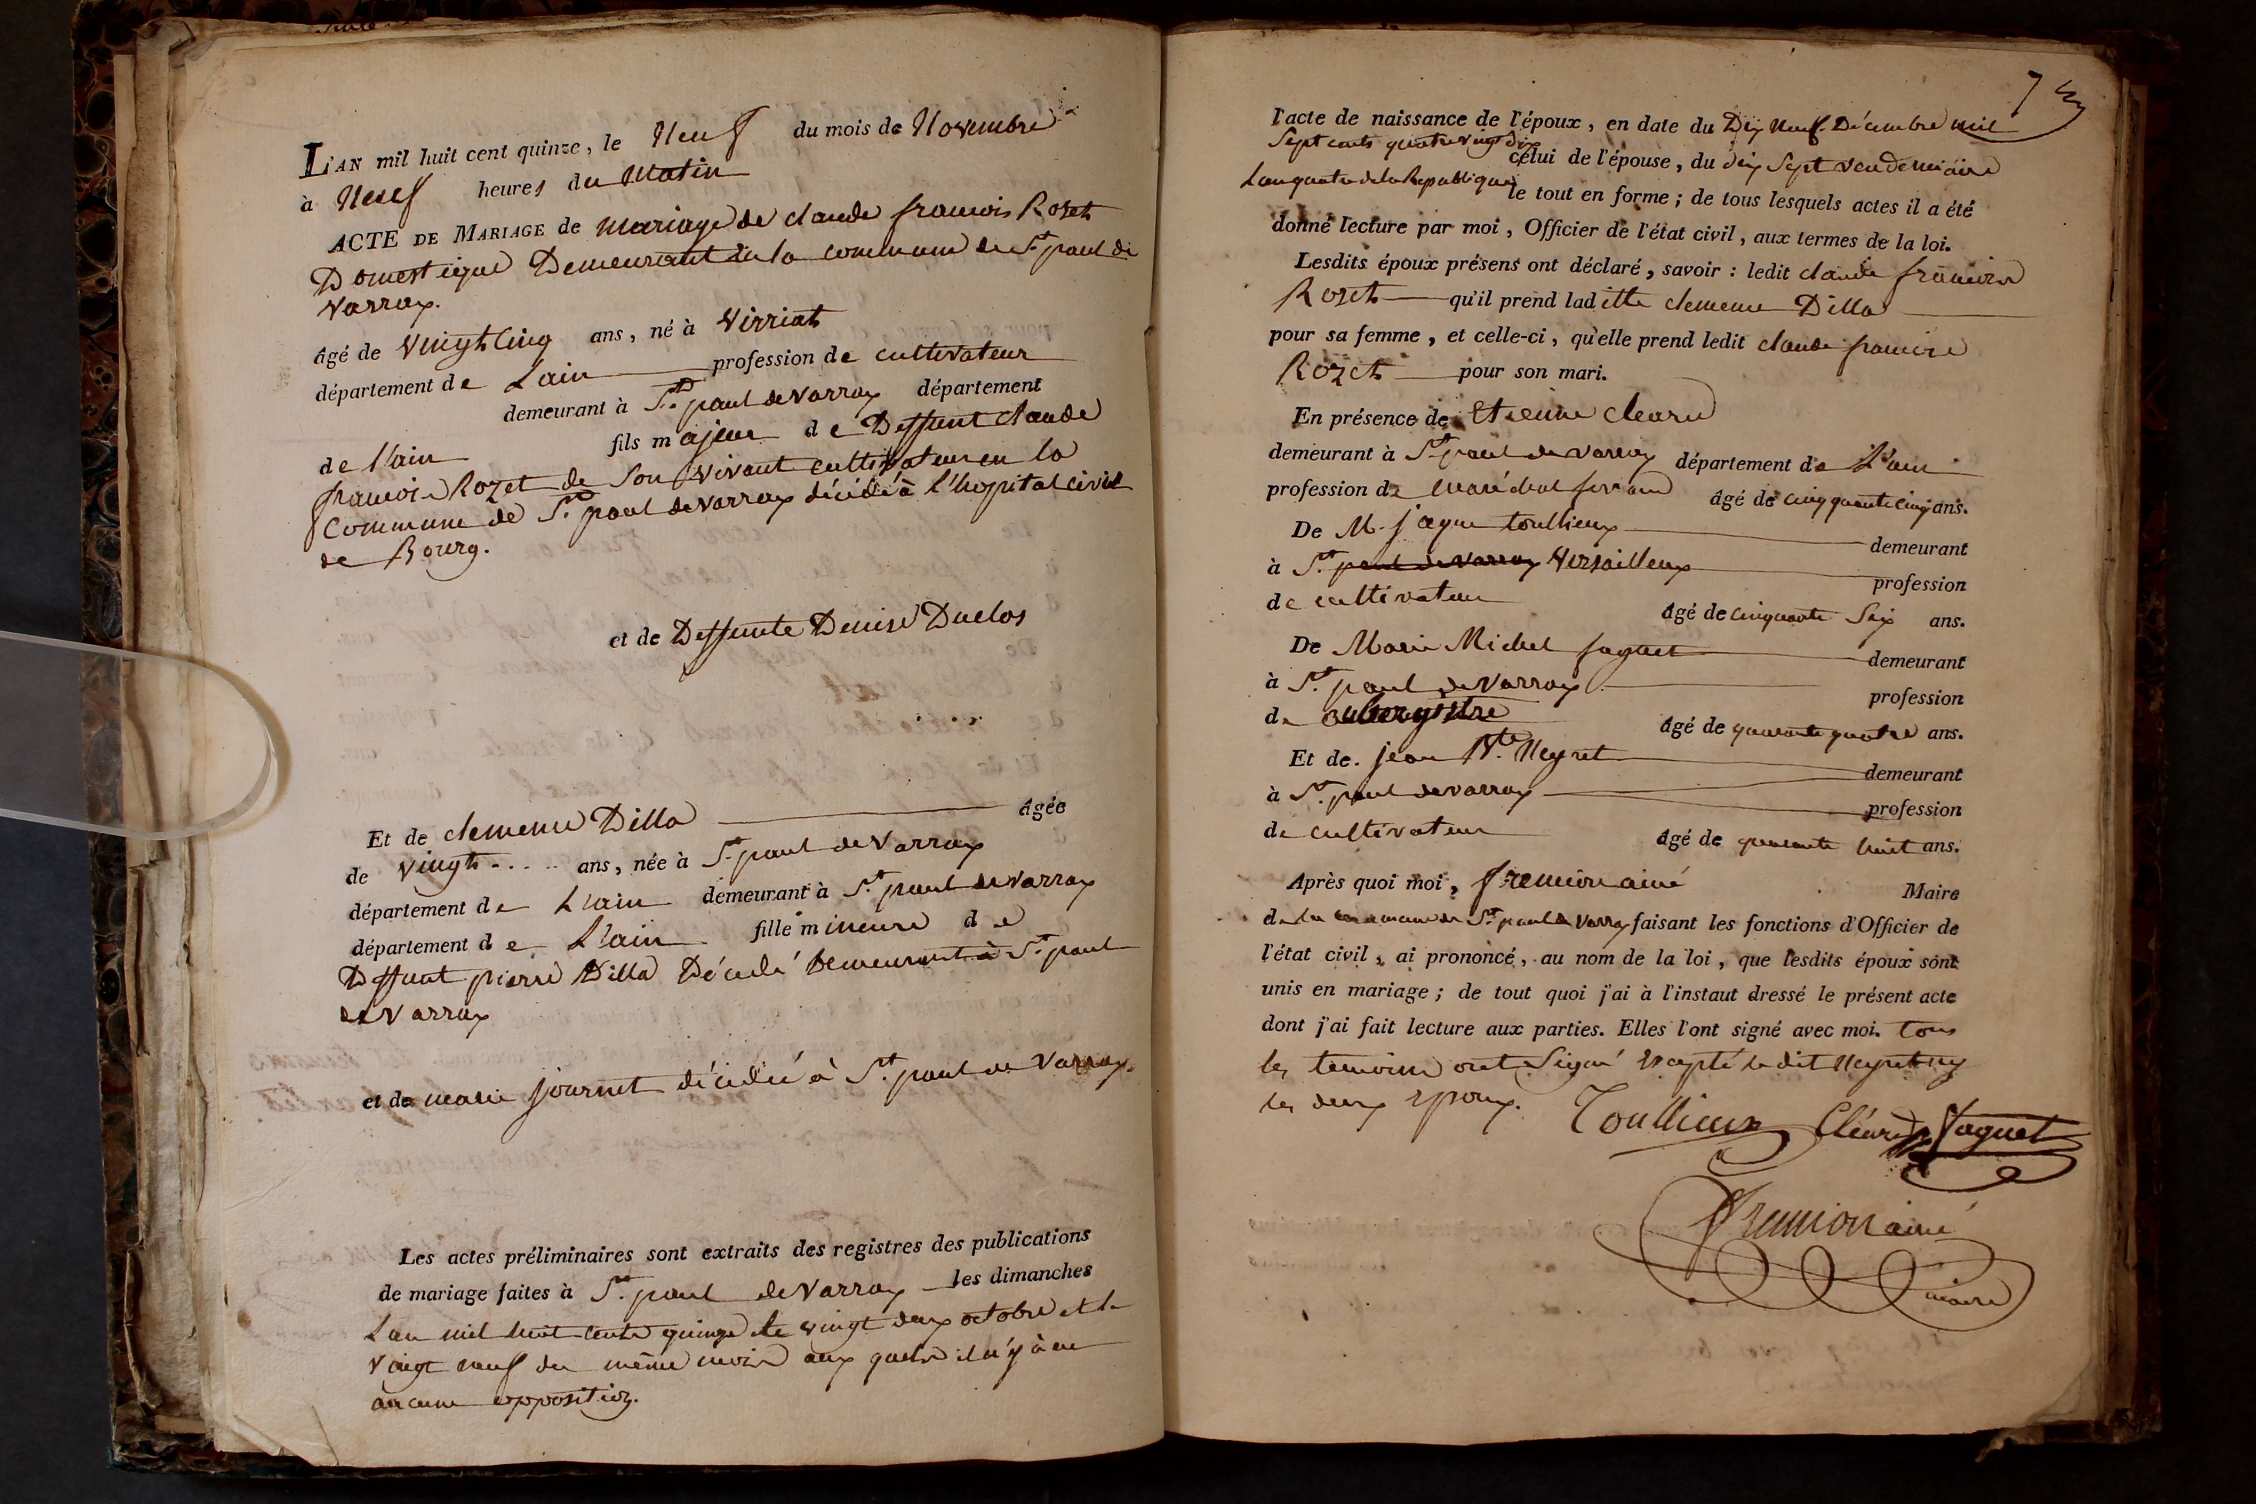 L'AN mil huit cent quinze, le Neuf du mois de Novembre
à Neuf heures du Matin
ACTE DE MARIAGE de mariage de claude francois Rozet
Domestique Demeurant en la commune de St paul de
Varrax.
âgé de vingt Cinq ans, né à Virriat
département de Lain profession de cultivateur
demeurant à St. paul de Varrax département
de l'ain fils majeur de Deffunt claude
francois Rozet de Son vivant cultivateur en la
Commune de St. paul de Varrax décédé à L'hopital civil
de Bourg.
et de Deffunte Denise Duclos
Et de clemence Dilla âgée
de vingt ans, née à St. paul de Varrax
département de L'ain demeurant à St. paul de Varrax
département de L'ain fille mineure de
Deffunt pierre Dilla Décédé Demeurant à St. paul
de Varrax
et de marie journet décédée à St. paul de Varrax.
Les actes préliminaires sont extraits des registres des publications
de mariage faites à St. paul de Varrax les dimanches
Lan mil huit cents quinze le vingt deux octobre et le
vingt neuf du même mois aux quels il n'y à eu
aucune opposition.
7
l'acte de naissance de l'époux, en date du Dix Neuf Décembre mil
Sept cents quatre vingt Dix
celui de l'épouse, du dix Sept vendemiaire
Lan quatre de la Republique
le tout en forme; de tous lesquels actes il a été
donné lecture par moi, Officier de l'état civil, aux termes de la loi.
Lesdits époux présens ont déclaré, savoir: ledit claude francois
Rozet qu'il prend laditte clemence Dilla
pour sa femme, et celle-ci, qu'elle prend ledit claude francois
Rozet pour son mari.
En présence de Etienne cleard
demeurant à St. paul de varrax département de L'ain
profession de maréchal ferrand âgé de cinqquante cinq ans.
De M. jaque toullieux demeurant
à St. paul de varrax Versailleux profession
de cultivateur âgé de cinquante Six ans.
De Marie Michel faguet demeurant
à St. paul de Varrax profession
de aubergistre âgé de quarante quatre ans.
Et de jean Bte. Neyret demeurant
à St. paul de varrax profession
de cultivateur âgé de quarante huit ans.
Après quoi moi, fremion ainé Maire
de la commune de St. paul de Varrax faisant les fonctions d'Officier de
l'état civil, ai prononcé, au nom de la loi, que lesdits époux sont
unis en mariage; de tout quoi j'ai à l'instaut dressé le présent acte
dont j'ai fait lecture aux parties. Elles l'ont signé avec moi. tous
les temoins ont Signé excepté le dit Neyret ny
les deux epoux. Toullieux Cléard Faguet
fremion ainé
maire